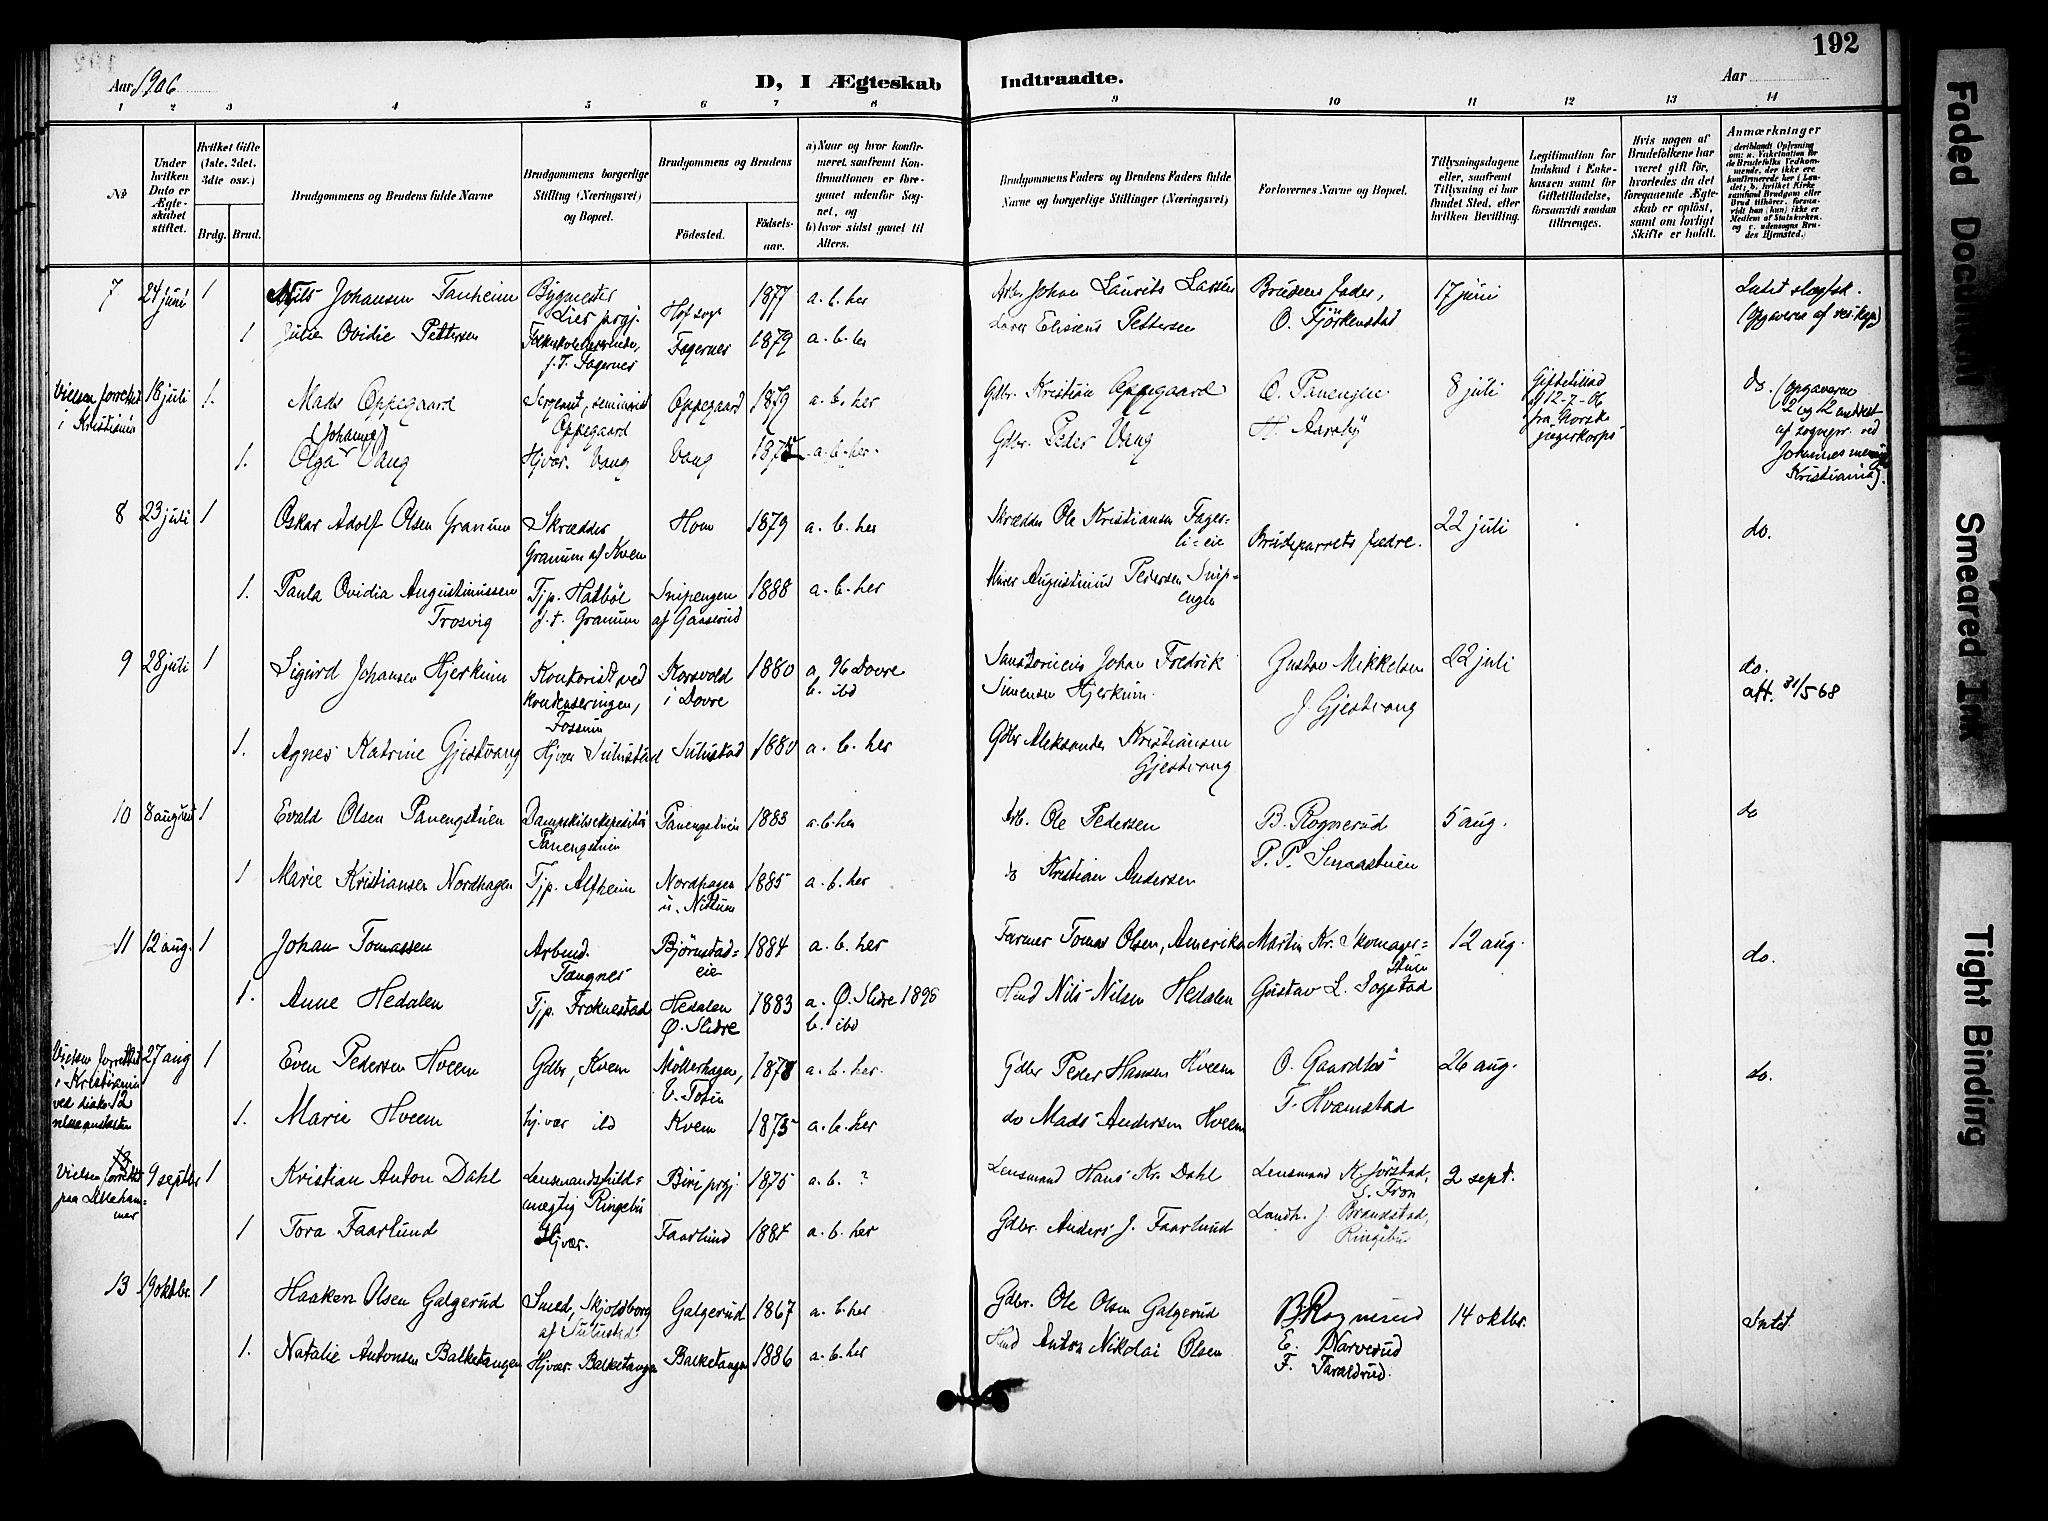 192
Aar 1906
D, I Ægteskab Indtraadte.
Aar
1 2 3 4 5 6 7 8 9 10 11 12 13 14
No
Under hvilken Dato er Ægteskabet stiftet.
Hvilket Gifte (1ste, 2det, 3die osv.)
Brdg. Brud.
Brudgommens og Brudens fulde Navne
Brudgommens borgerlige Stilling (Næringsvei) og Bopæl.
Brudgommens og Brudens
Födested.
Födselsaar.
a) Naar og hvor konfirmeret, saafremt Konfirmationen er foregaaet udenfor Sognet, og
b) hvor sidst gaaet til Alters.
Brudgommens Faders og Brudens Faders fulde Navne og borgerlige Stillinger (Næringsvei)
Forlovernes Navne og Bopæl.
Tillysningsdagene eller, saafremt Tillysning ei har fundet Sted, efter hvilken Bevilling.
Legitimation for Indskud i Enkekassen samt for Giftetilladelse, forsaavidt saadan tiltrænges.
Hvis nogen af Brudefolkene har været gift för, hvorledes da det foregaaende Ægteskab er oplöst, samt om lovligt Skifte er holdt.
Anmærkninger
7 24 juni 1 Nils Johansen Tanheim Bygmester Lier prgj. Hof sogn 1877 a. b. her Johan Laurits Larsen Brudens fader, 17 juni Intet slægtsk.
1 Julie Ovidie Pettersen Fagernes 1879 a. b. her Elisæus Pettersen O. Fjörkenstad
Vielsen forrettet i Kristiania 18 juli 1. Mads Oppegaard Sergeant, seminarist Oppegaard Oppegaard 1879 a. b. her Gdbr. Kristian Oppegaard O. Panengen 8 juli Giftetillad. af 12-7-06 fra Norske jægerkorps do. (Opgaverne
1. Olga (Johanne) Vang Hjvær. Vang Vang a. b. her. Gdbr. Peder Vang H. Aarsby af sognepr. ved Johannes menigh. Kristiania).
8 23 juli 1 Oskar Adolf Olsen Granum Skrædder Granum af Kvem Hom 1879 a. b. her Skrædder Ole Kristiansen Fagerli=eie Brudeparrets fædre. 22 juli do.
1. Paula Ovidia Augustinussen Trosvig Tjp. Hatböl f. t. Granum Snipengen af Gaaserud 1888 a. b. her Murer Augustinus Pedersen Snip=engen
9 28 juli 1 Sigurd Johansen Hjerkinn Kontorist ved kondenseringen, Fossum Korsvold i Dovre 1880 a. 96 Dovre b. ibd Johan Fredrik Simensen Hjerkinn. Gustav Mikkelsen 22 juli do. att. 31/5 68
1. Agnes Katrine Gjestvang Hjvær Sulustad Sulustad 1880 a. b. her Gdbr Aleksander Kristiansen Gjestvang J. Gjestvang
10 8 august 1 Evald Olsen Panengstuen Dampskibsekspeditör Panengstuen Panengstuen 1883 a. b. her Arb. Ole Pedersen B. Rognerud 5 aug. do
1 Marie Kristiansen Nordhagen Tjp. Alfheim Nordhagen u. Nittum 1885 a. b. her do Kristian Andersen P. P. Smaastuen
11 12 aug. 1 Johan Tomassen Arbeid. Tangnes Björnstad=eie 1884 a. b. her Farmer Tomas Olsen, Amerika Martin Kr. Skomager=stuen 12 aug. do.
1. Anne Hedalen Tjp. Froknestad Hedalen Ø. Slidre 1883 a. Ø. Slidre 1896 b. ibd Nils Nilsen Hedalen Gustav L. Sogstad
Vielsen forrettet i Kristiania 27 aug 1 Even Pedersen Hveem Gdbr, Kvem Möllerhagen, V. Toten 1878 a. b. her. Gdbr Peder Hansen Hveem O. Gaardlös 26 aug. do.
1. Marie Hveem hj.vær ibd Kvem 1875 a. b. her do Mads Andersen Hveem T. Hvamstad
12 Vielsen forrettet paa Lillehammer 9 septbr 1 Kristian Anton Dahl Lensmandsfuld=mægtig Ringebu Biri prgj. 1875 a. b. ? Lensmand Hans Kr. Dahl Lensmand K. Jörstad, S. Fron 2 sept.
1 Tora Faarlund Hjvær. Faarlund 1884 a. b. her Gdbr. Anders J. Faarlund Landh. J. Brandstad, Ringebu
13 19 oktbr. 1 Haaken Olsen Galgerud Smed, Skjoldborg af Sulustad Galgerud 1867 a. b. her Gdbr. Ole Olsen Galgerud B. Rognerud 14 oktbr. Intet
1. Natalie Antonsen Balketangen Hjvær. Balketangen Balketangen 1886 a. b. her Anton Nikolai Olsen E. Narverud
F. Taraldrud.
Faded Document
Smeared Ink
Tight Binding